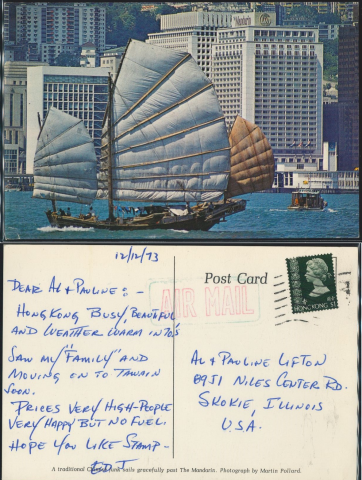 Mandarin
12/12/73
Post Card
AIR MAIL
HONG KONG $1
DEAR AL & PAULINE: -
HONG KONG BUSY, BEAUTIFUL
AND WEATHER WARM IN 70'S
SAW MY "FAMILY" AND
MOVING ON TO TAIWAIN
SOON.
PRICES VERY HIGH - PEOPLE
VERY HAPPY BUT NO FUEL.
HOPE YOU LIKE STAMP -
ED. T
AL & PAULINE LIFTON
8951 NILES CENTER RD.
SKOKIE, ILLINOIS
U.S.A.
A traditional Chinese junk sails gracefully past The Mandarin. Photograph by Martin Pollard.